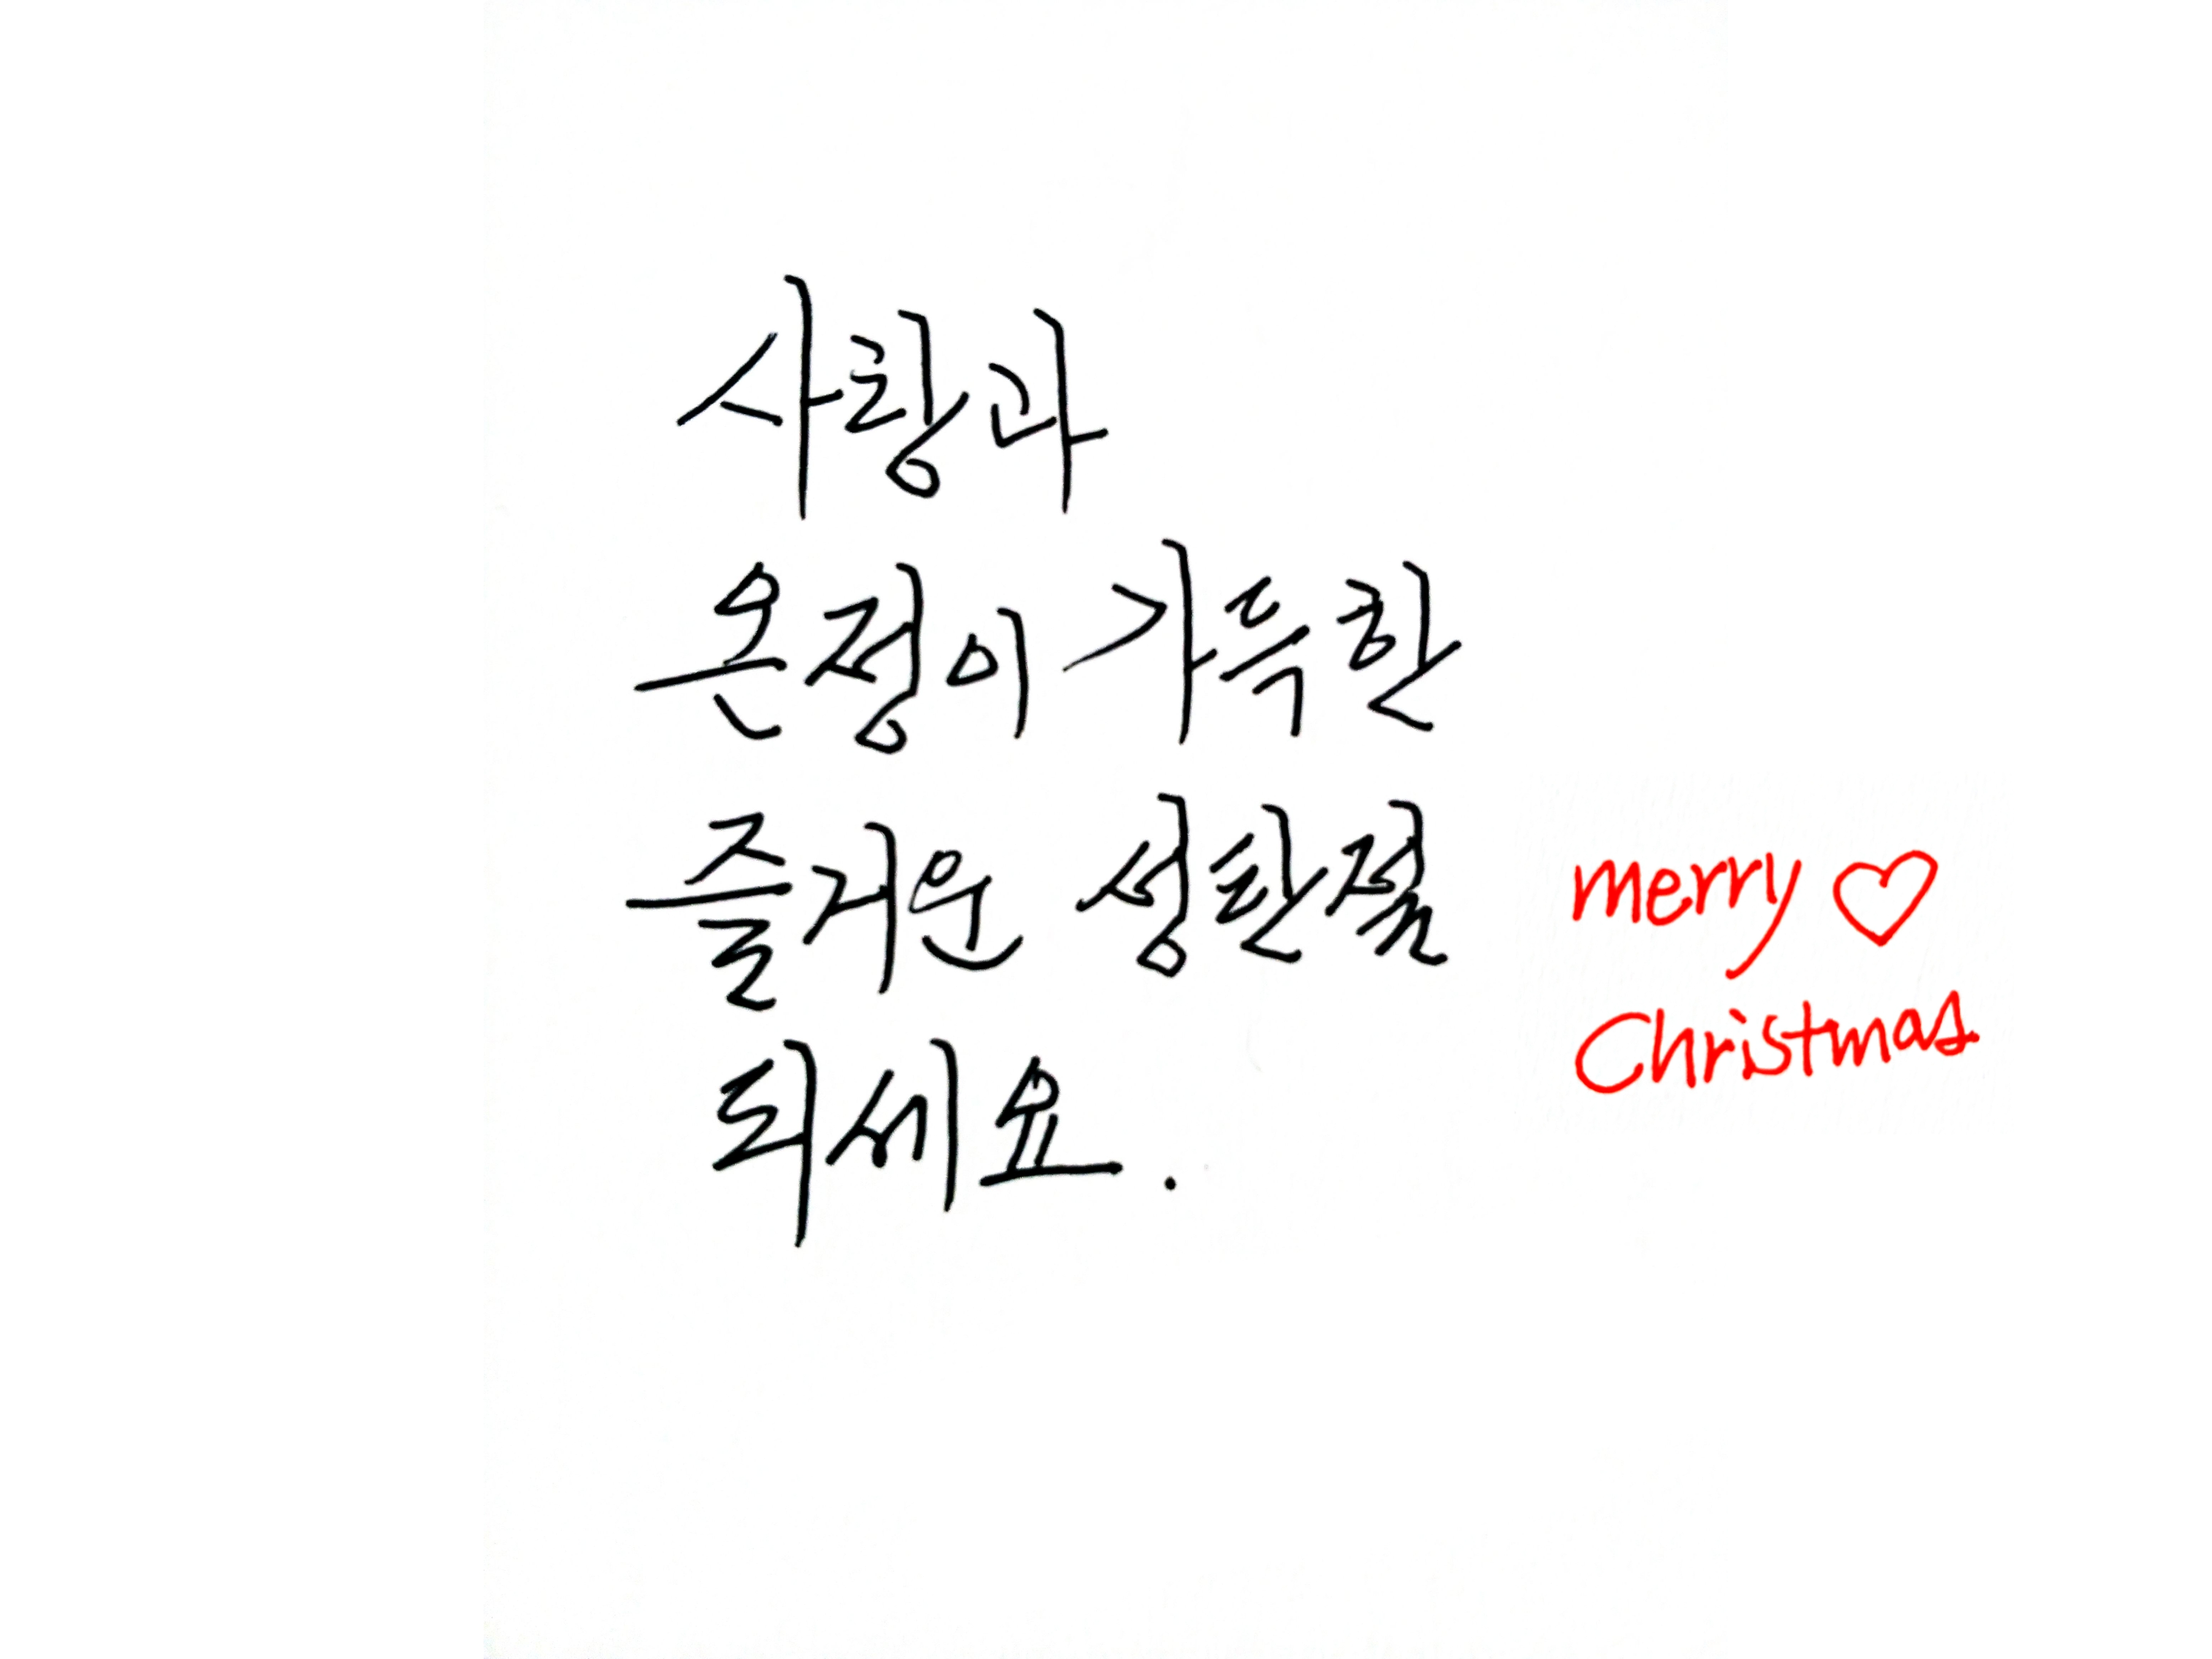 사랑과
온정이 가득한
즐거운 성탄절
되세요.
merry ♡
Christmas